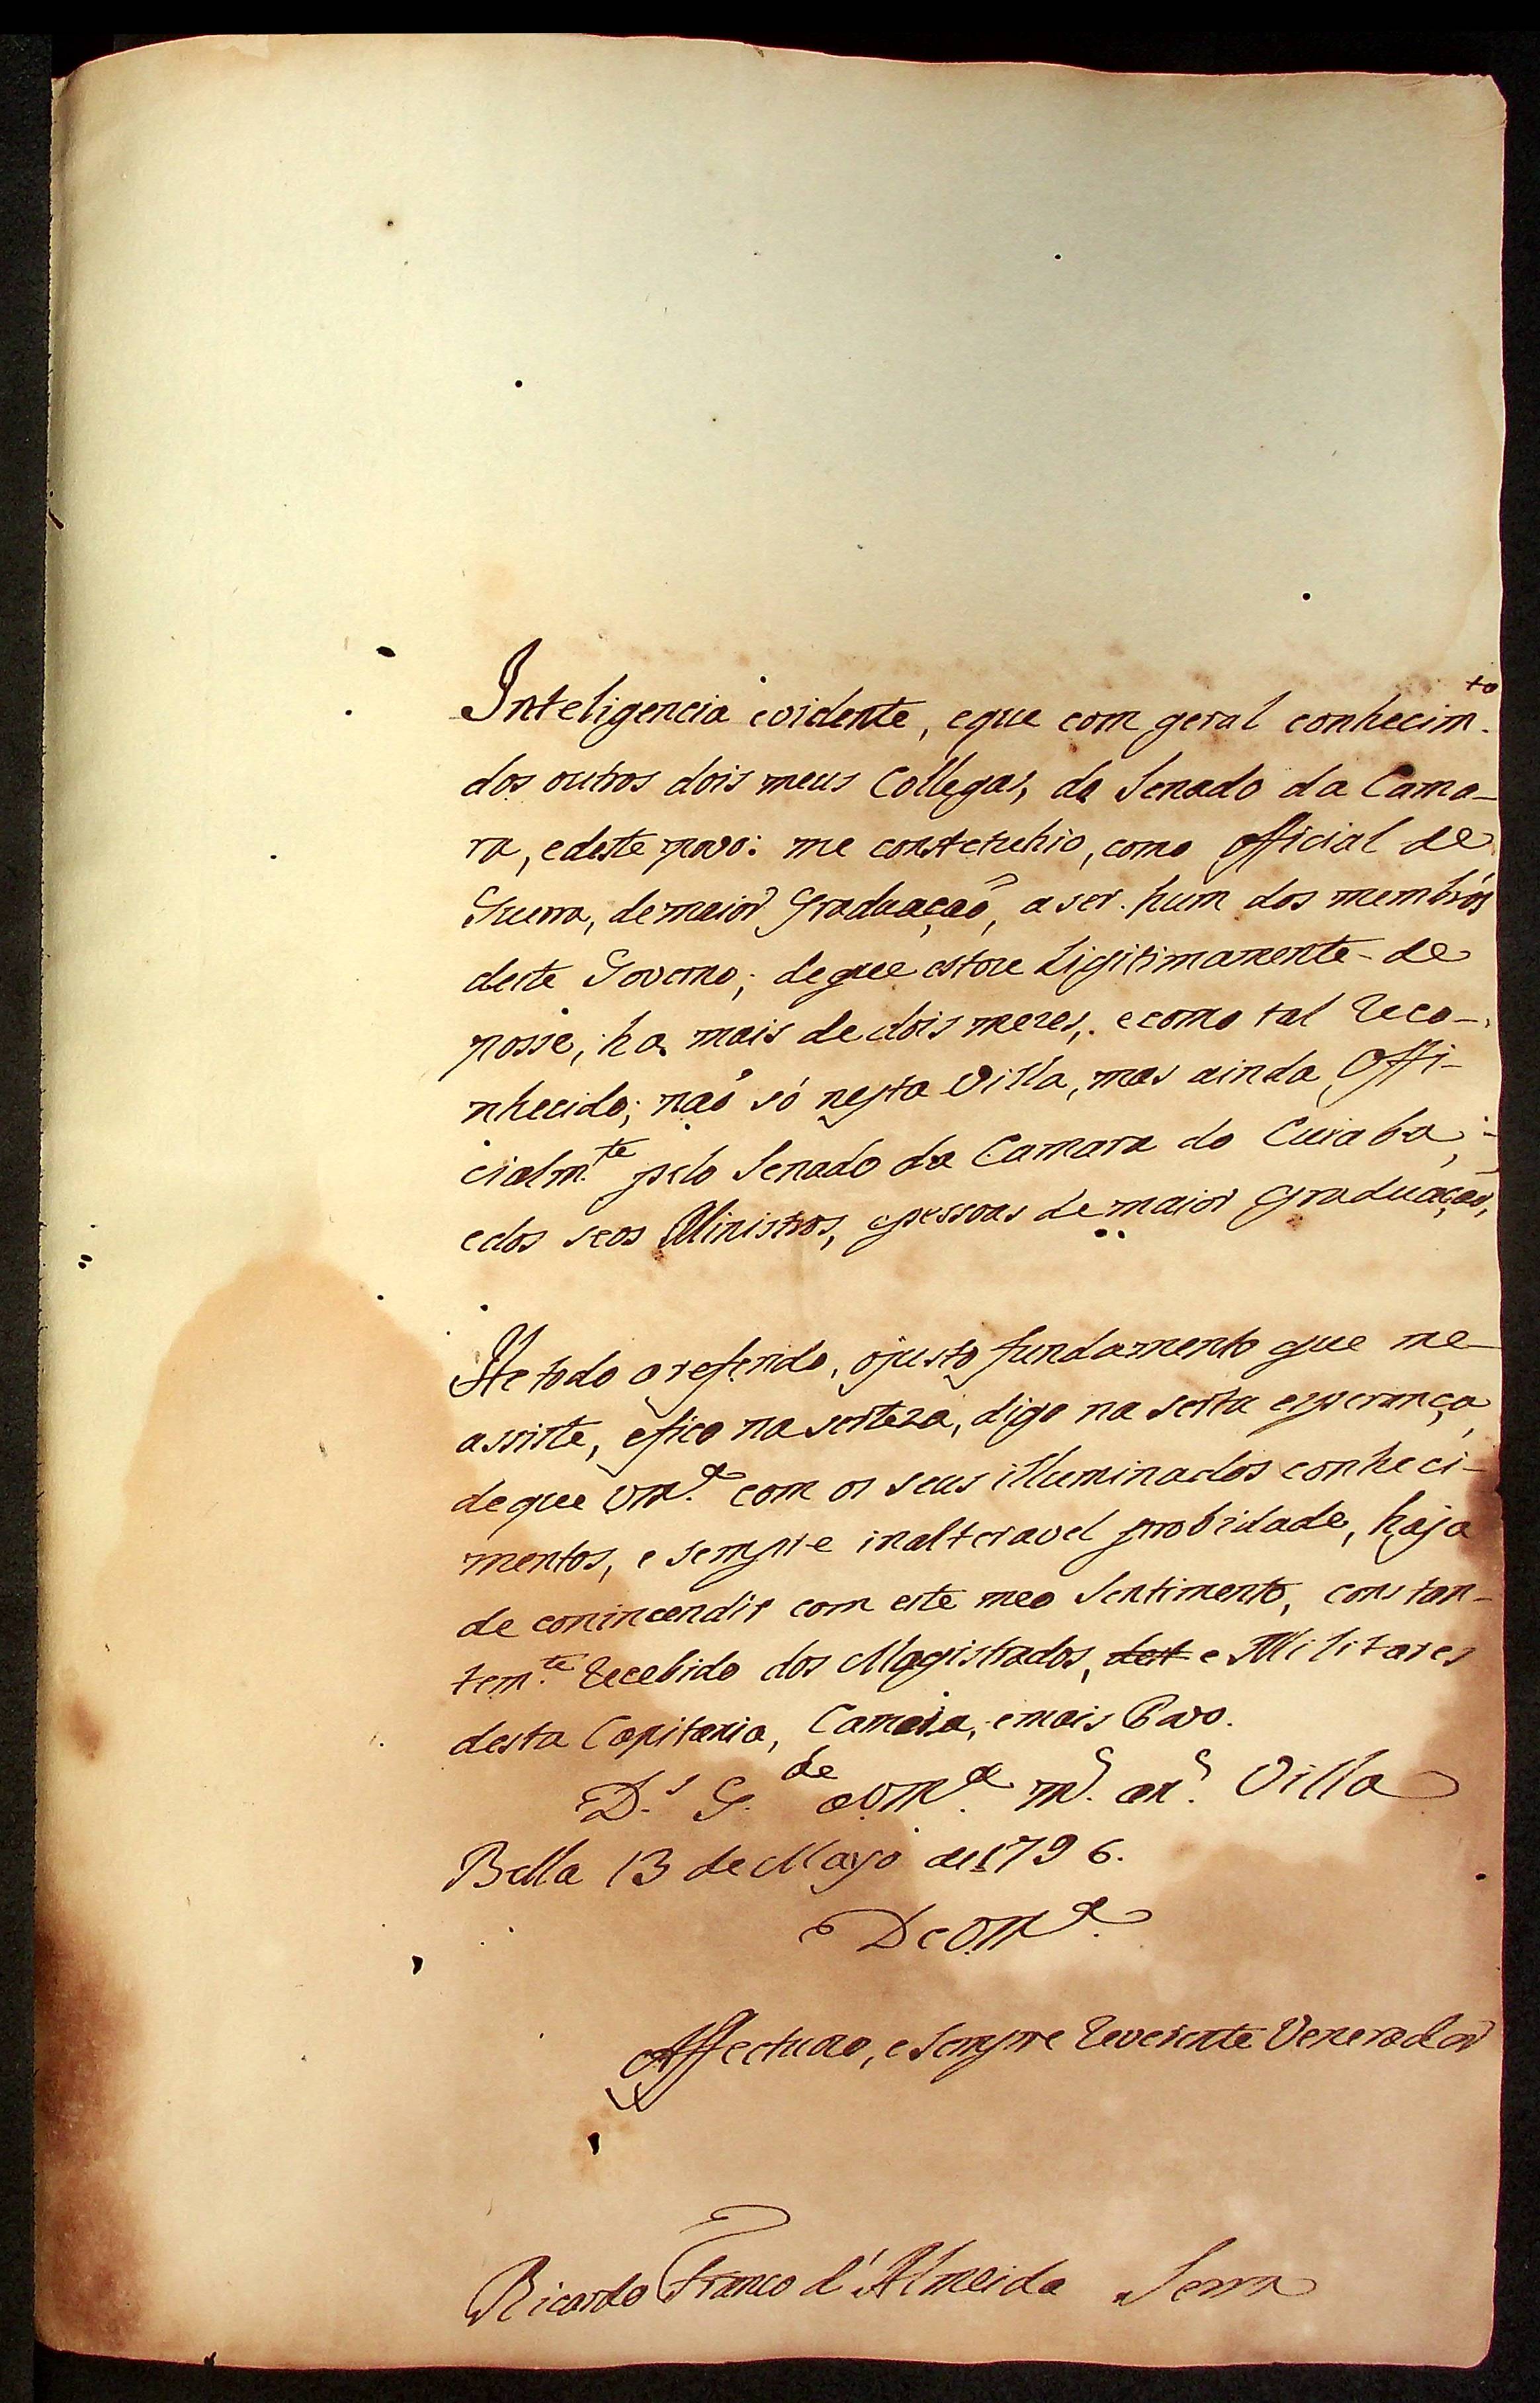 Inteligencia evidente, eque com geral conhecim.to
dos outros dois meus Collegas, do Senado da Cama-
ra, edeste povo: me constetuhio, como official de
Guerra, demaior Graduação, a ser hum dos membros
deste Governo; deque estou Ligitimamente de
posse, ha mais de dois mezes, ecomo tal Reco-
nhecido; não só nesta Villa, mas ainda Offi-
cialm.te pelo Senado da Camara do Cuiaba,
edos seos Ministros, epessoas demaior graduação,
He todo oreferido, ojusto fundamento que me
assiste, efico na serteza, digo na serta esperança
deque VM.ce com os seus illuminados conheci-
mentos, e sempre inalteravel probidade, haja
de conincendir com este meo Sentimento, constan-
tem.te Recebido dos Magistrados, e Militares
desta Capitania, Camara, emais Povo.
D.s G.de a VM.ce m.s an.s Villa
Bella 13 de Mayo de 1796.
De VM.ce
Affectuozo, e Sempre Reverente Venerador
Ricardo Franco d'Almeida Serra